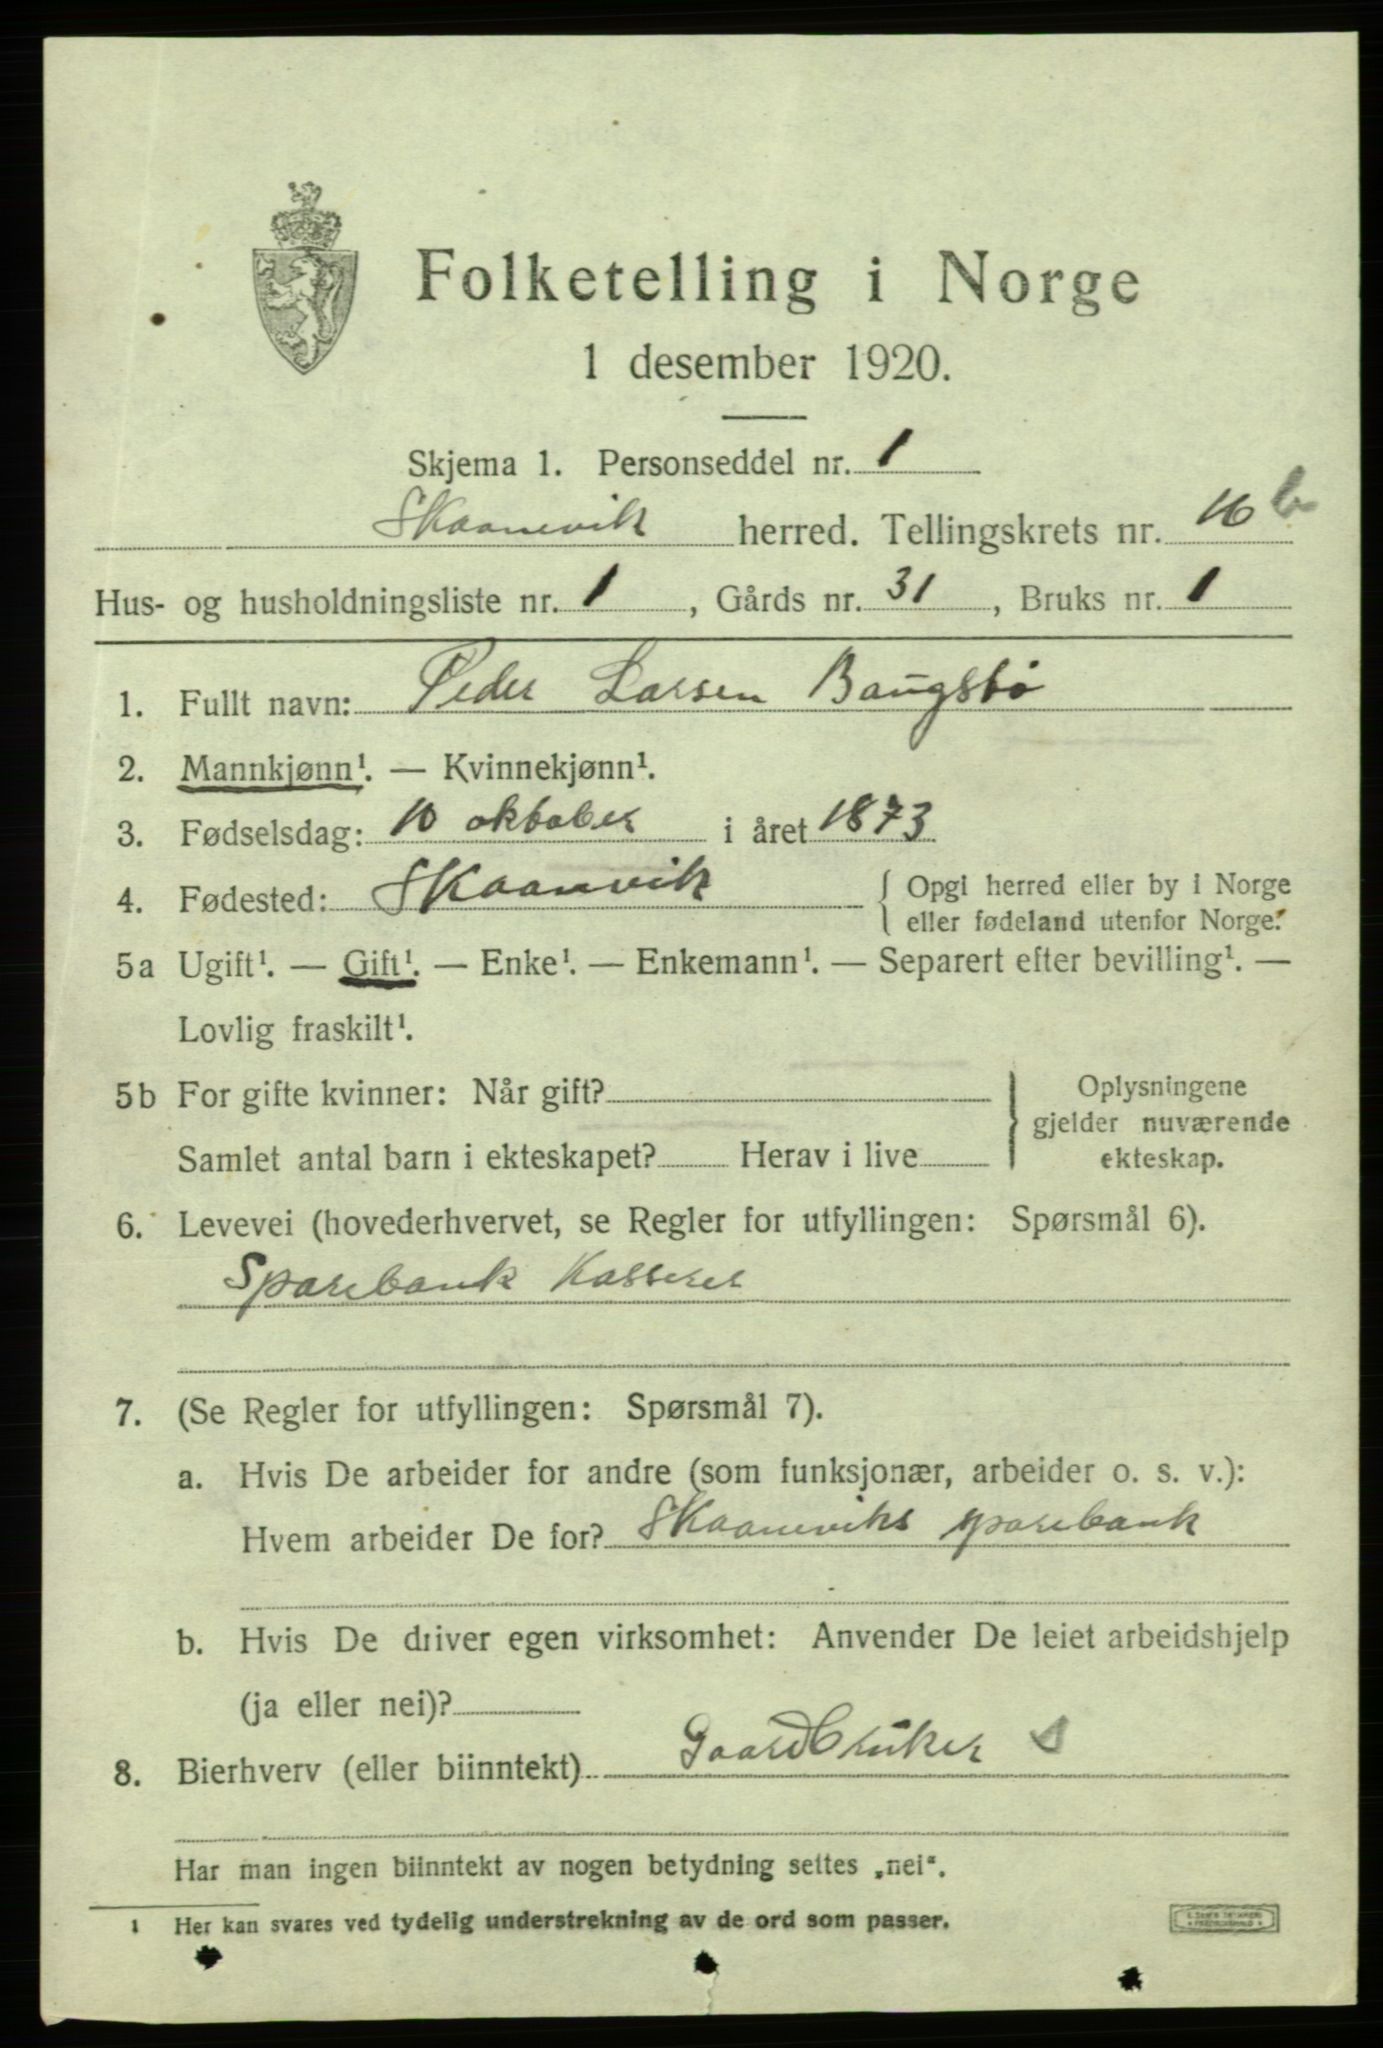 Folketelling i Norge
1 desember 1920.
Skjema 1. Personseddel nr. 1
Skaanevik herred. Tellingskrets nr. 16 b
Hus- og husholdningsliste nr. 1, Gårds nr. 31, Bruks nr. 1
1. Fullt navn: Peder Larsen Baugstø
2. Mannkjønn¹. — Kvinnekjønn¹.
3. Fødselsdag: 10 oktober i året 1873
4. Fødested: Skaanvik { Opgi herred eller by i Norge
eller fødeland utenfor Norge.
5a Ugift¹. — Gift¹. — Enke¹. — Enkemann¹. — Separert efter bevilling¹. —
Lovlig fraskilt¹.
5b For gifte kvinner: Når gift? } Oplysningene
gjelder nuværende
Samlet antal barn i ekteskapet? Herav i live ekteskap.
6. Levevei (hovederhvervet, se Regler for utfyllingen: Spørsmål 6).
Sparebank Kasserer
7. (Se Regler for utfyllingen: Spørsmål 7).
a. Hvis De arbeider for andre (som funksjonær, arbeider o. s. v.):
Hvem arbeider De for? Skaaneviks sparebank
b. Hvis De driver egen virksomhet: Anvender De leiet arbeidshjelp
(ja eller nei)?
8. Bierhverv (eller biinntekt) Gaardbruker s
Har man ingen biinntekt av nogen betydning settes „nei“.
1 Her kan svares ved tydelig understrekning av de ord som passer.